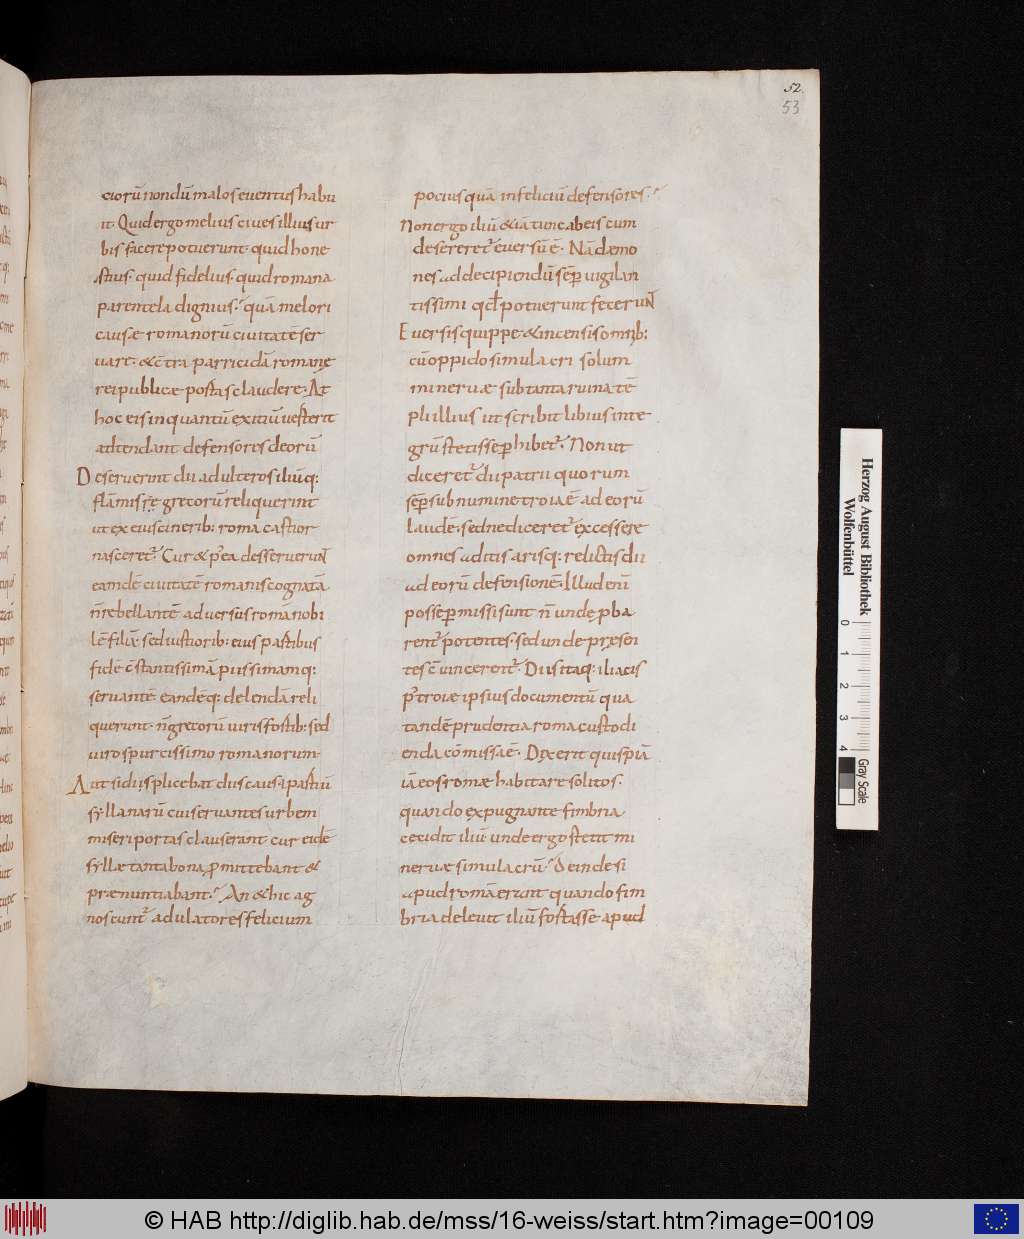 52.
53
ciorū nondū malos eventus habu
it. Quid ergo melius cives illius ur
bis facere potuerunt. quid hone
stius. quid fidelius. quid romana
parentela dignius. quā meliori
causæ romanorū civitatē ser
uare. &c̄tra parricidā romanę
rei publicæ postas claudere. At
hoc eis in quantū exitiū uesterit
adtendant defensores deorū
Deseruerint dii adulteros iliūq:
flāmis gręcorū reliquerint
ut ex eius cinerib: roma castior
nasceret᷑. Cur & p᷑ea desseruerunt
eamdē civitatē romanis cognatā
n̄ rebellantē adversus romā nobi
lē filiā sed iustiorib: eius pastibus
fidē c̄stantissimā piissimamq:
servantē. eandēq: delendā reli
querunt. n̄ grecorū uiris fostib: sed
uiro spurcissimo romanorum.
Aut si diisplicebat diis causa pastiū
syllanarū cui servantes urbem
miseri portas clauserant cur eidē
syllæ tanta bona promittebant &
prænuntiabant. An & hic ag
noscunt᷑ adulatores felicium
pocius quā infeliciū defensores.
Non ergo iliū & iā tunc ab eis cum
desereret᷑ eversū ē. Nā dæmo
nes ad decipiendū sēp uigilan
tissimi qd potuerunt fecerunt
Eversis quippe & incensis omnib:
cū oppido simulacri solum
minervæ sub tanta ruina tē
pli illius ut scribit libius inte
grū stetisse phibet᷑. Non ut
diceret᷑ dii patrii quorum
sēp sub numine troia ē. ad eorū
laudē. sed ne diceret᷑ excessere
omnes aditis arisq: relictis dii
ad eorū defensionē. Illud enī
posse pmissi sunt n̄ unde pba
rent᷑ potentes. sed unde pręsen
tes c̄vincerent᷑. Diisitaq: iliacis
p᷑ troiæ ipsius documentū qua
tandē prudentia roma custodi
enda cōmissa ē. Dixerit quispiā
iā eos romæ habitare solitos.
quando expugnante fimbria
cecidit iliū unde ergo stetit mi
nervæ simulacrū. Deinde si
apud romā erant quando fim
bria delevit iliū fostasse apud
Herzog August Bibliothek
Wolfenbüttel
0 1 2 3 4
Gray Scale
© HAB http://diglib.hab.de/mss/16-weiss/start.htm?image=00109